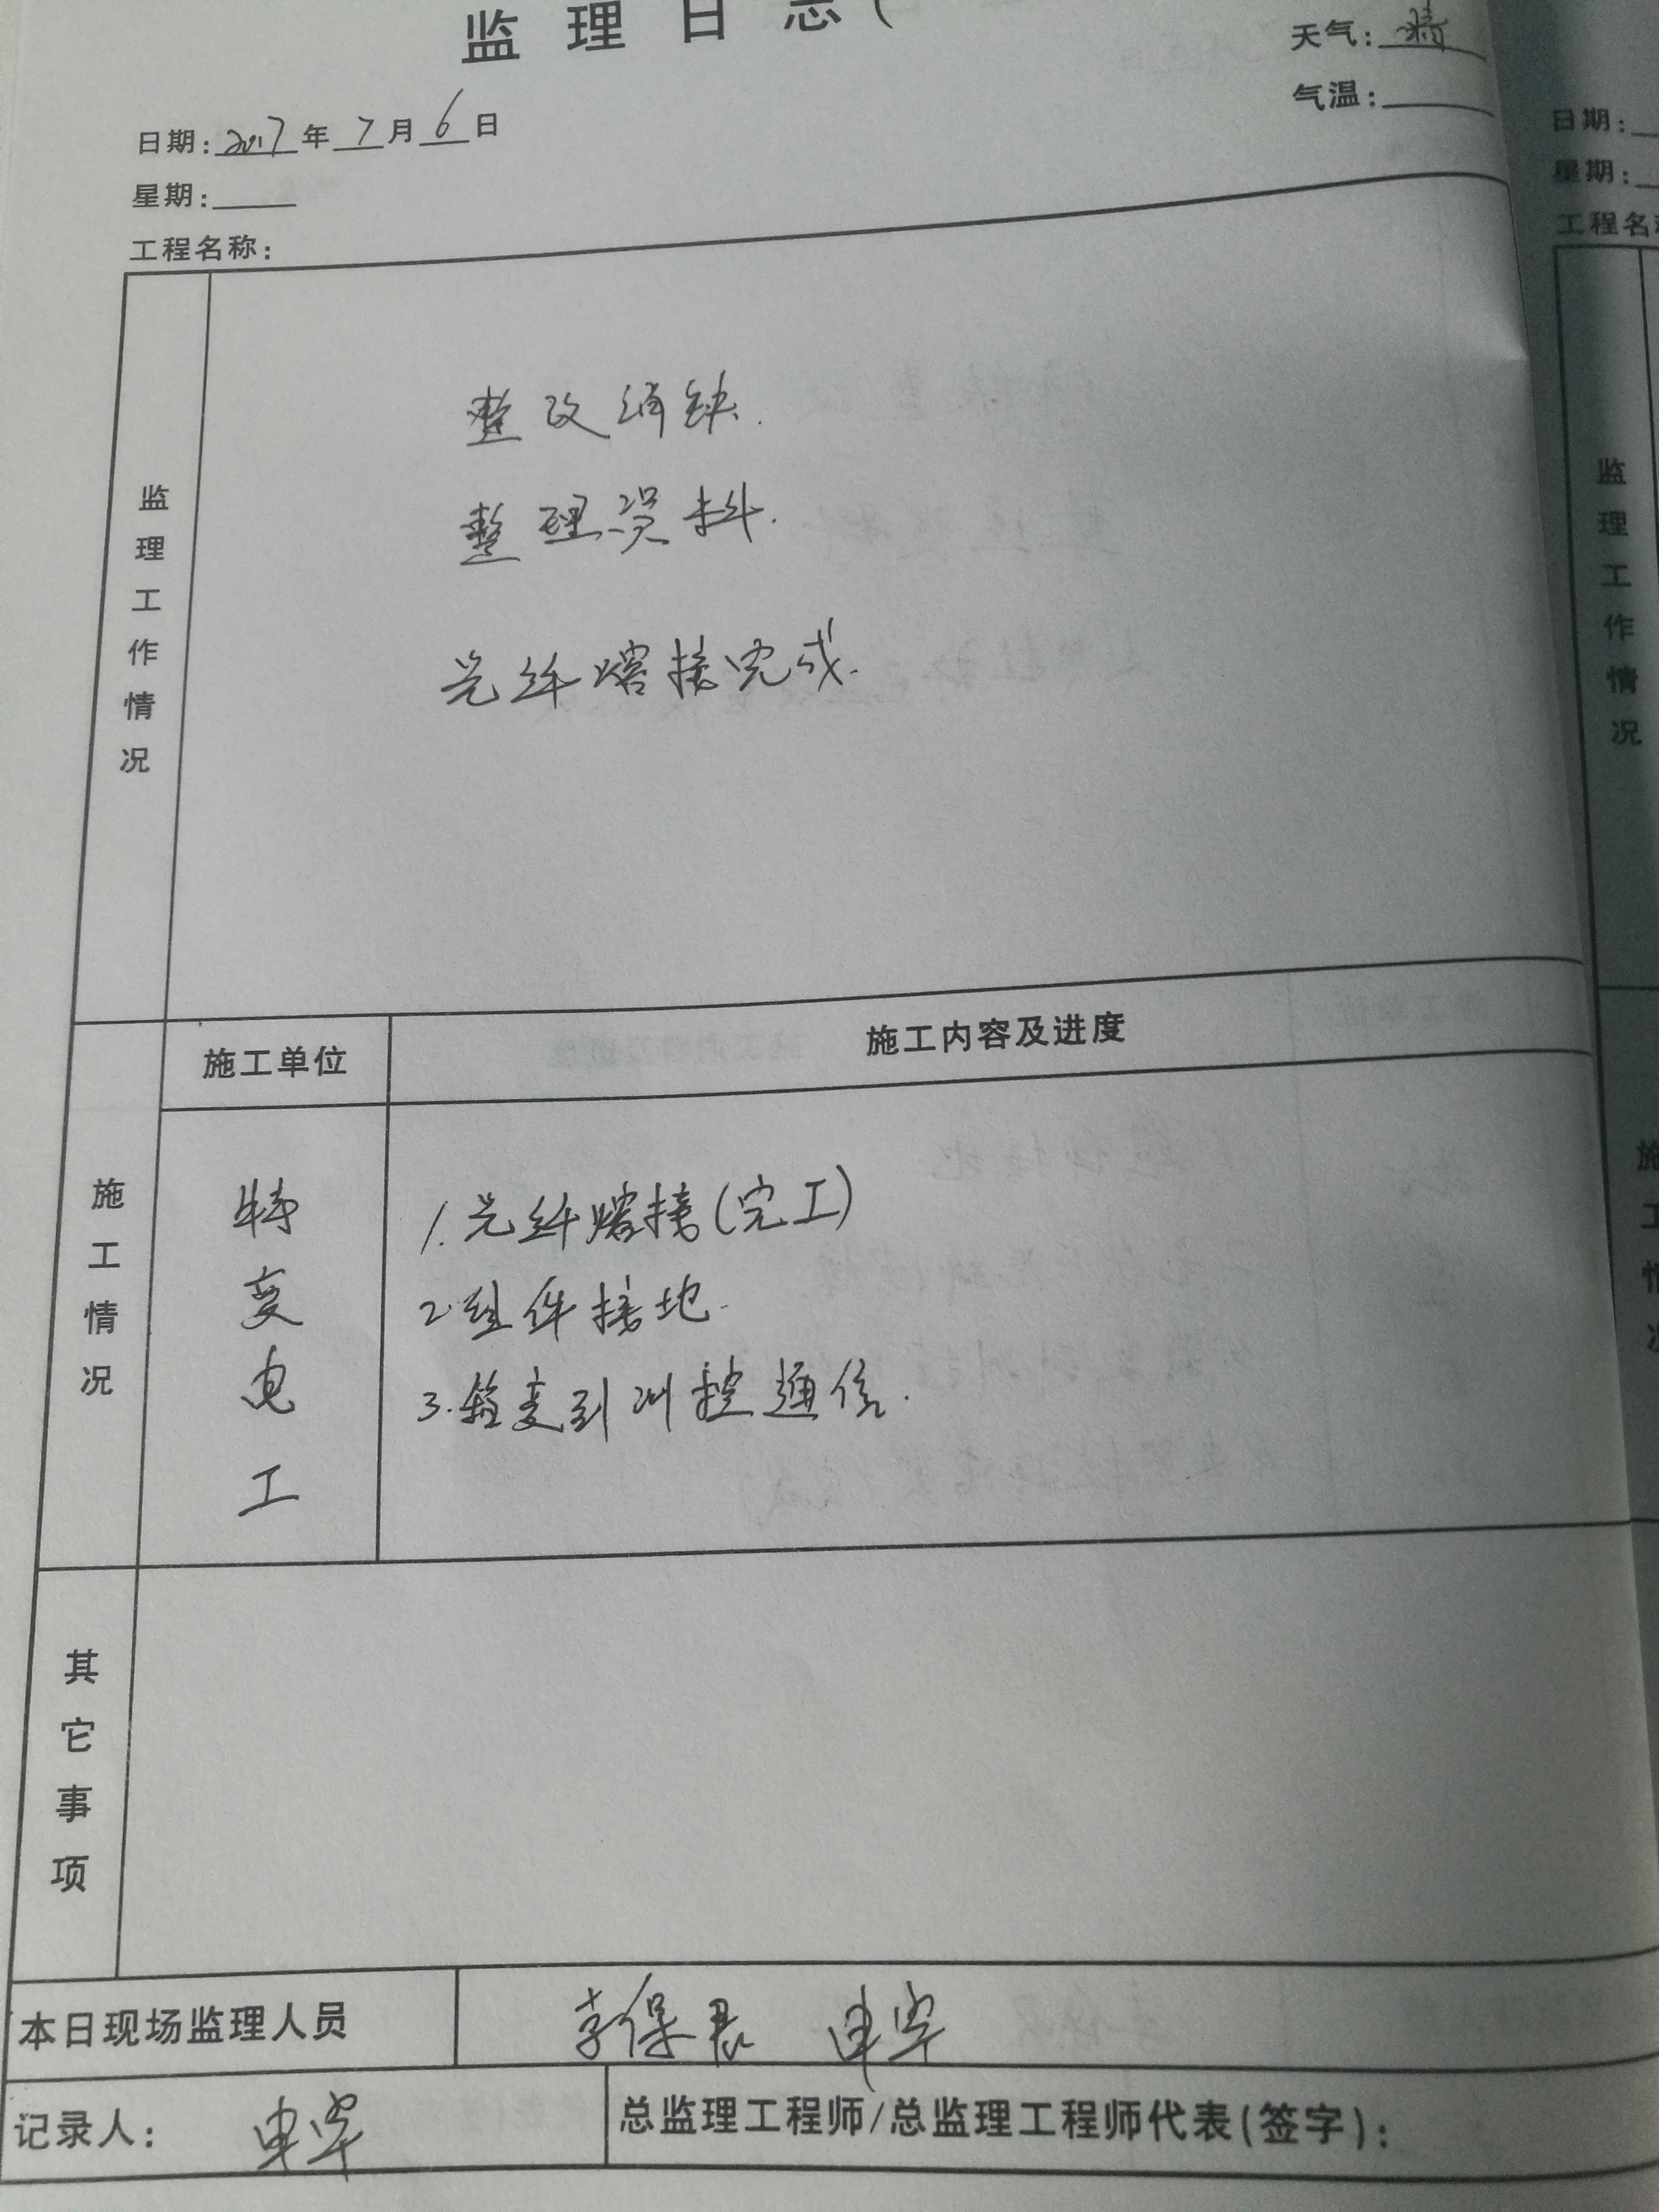 监理日志(
天气:晴
气温:
日期:2017年7月6日
星期:
工程名称:
监理工作情况
整改消缺.
整理资料.
光纤熔接完成.
施工单位
施工内容及进度
施工情况
特变电工
1.光纤熔接(完工)
2.组件接地.
3.箱变到测控通信.
其它事项
本日现场监理人员
李保君 申宇
记录人: 申宇
总监理工程师/总监理工程师代表(签字):
日期:
星期:
工程名
监理工作情况
施工情